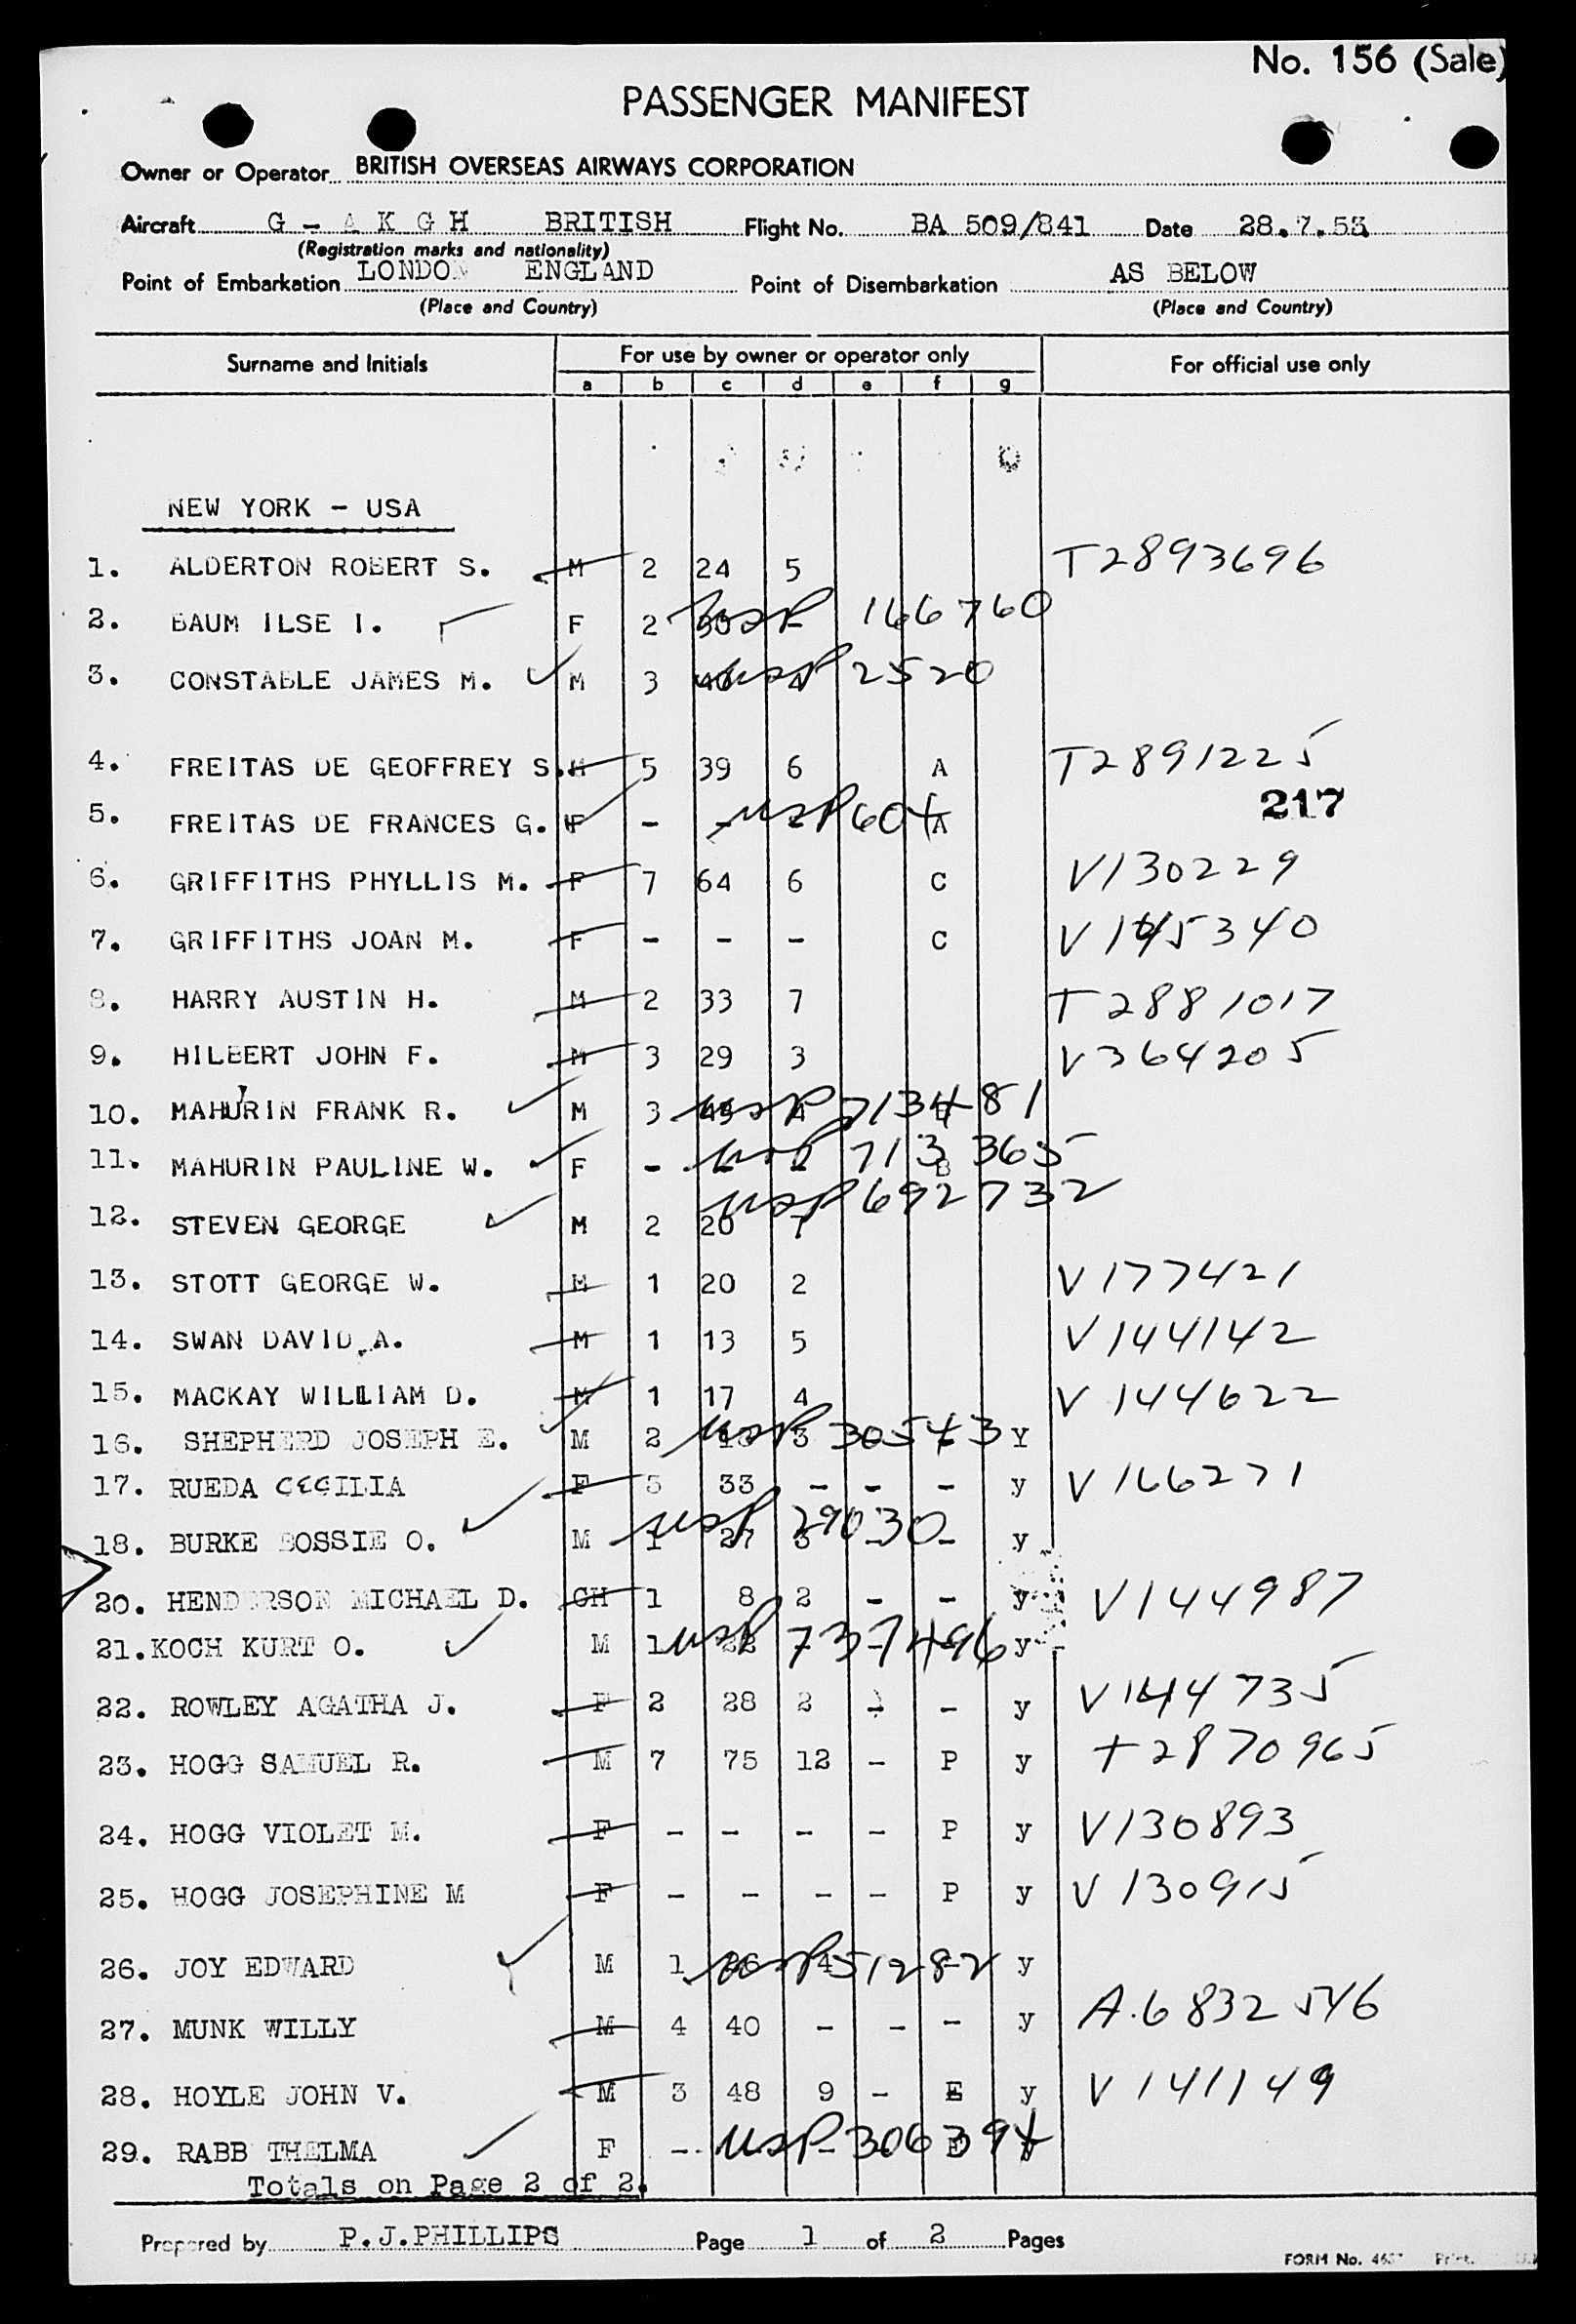 No. 156 (Sale)
PASSENGER MANIFEST
Owner or Operator BRITISH OVERSEAS AIRWAYS CORPORATION
Aircraft G - A K G H BRITISH Flight No. BA 509/841 Date 28.7.53.
(Registration marks and nationality)
Point of Embarkation LONDON ENGLAND Point of Disembarkation AS BELOW
(Place and Country) (Place and Country)
Surname and Initials For use by owner or operator only For official use only
a b c d e f g
NEW YORK - USA
1. ALDERTON ROBERT S. M 2 24 5 T2893696
2. BAUM ILSE I. F 2 30 - USP 166760
3. CONSTABLE JAMES M. M 3 46 4 USP 2520
4. FREITAS DE GEOFFREY S. M 5 39 6 A T2891225
217
5. FREITAS DE FRANCES G. F - - - USP 604 A
6. GRIFFITHS PHYLLIS M. F 7 64 6 C V130229
7. GRIFFITHS JOAN M. F - - - C V145340
8. HARRY AUSTIN H. M 2 33 7 T2881017
9. HILBERT JOHN F. M 3 29 3 V364205
10. MAHURIN FRANK R. M 3 49 4 USP 713481
11. MAHURIN PAULINE W. F - - - USP 713365 B
12. STEVEN GEORGE M 2 20 7 USP 692732
13. STOTT GEORGE W. M 1 20 2 V177421
14. SWAN DAVID A. M 1 13 5 V144142
15. MACKAY WILLIAM D. M 1 17 4 V144622
16. SHEPHERD JOSEPH E. M 2 3 USP 305443 Y
17. RUEDA CECILIA F 3 33 - - - y V166271
18. BURKE BOSSIE O. M 1 27 3 - - USP 29030 y
20. HENDERSON MICHAEL D. CH 1 8 2 - - y V144987
21. KOCH KURT O. M 1 22 USP 737496 y
22. ROWLEY AGATHA J. F 2 28 2 - - y V144735
23. HOGG SAMUEL R. M 7 75 12 - P y T2870965
24. HOGG VIOLET M. F - - - - P y V130893
25. HOGG JOSEPHINE M F - - - - P y V130915
26. JOY EDWARD M 1 26 4 USP 51282 y
27. MUNK WILLY M 4 40 - - - y A.6832546
28. HOYLE JOHN V. M 3 48 9 - E y V141149
29. RABB THELMA F - - USP 306394
Totals on Page 2 of 2.
Prepared by P.J.PHILLIPS Page 1 of 2 Pages
FORM No.